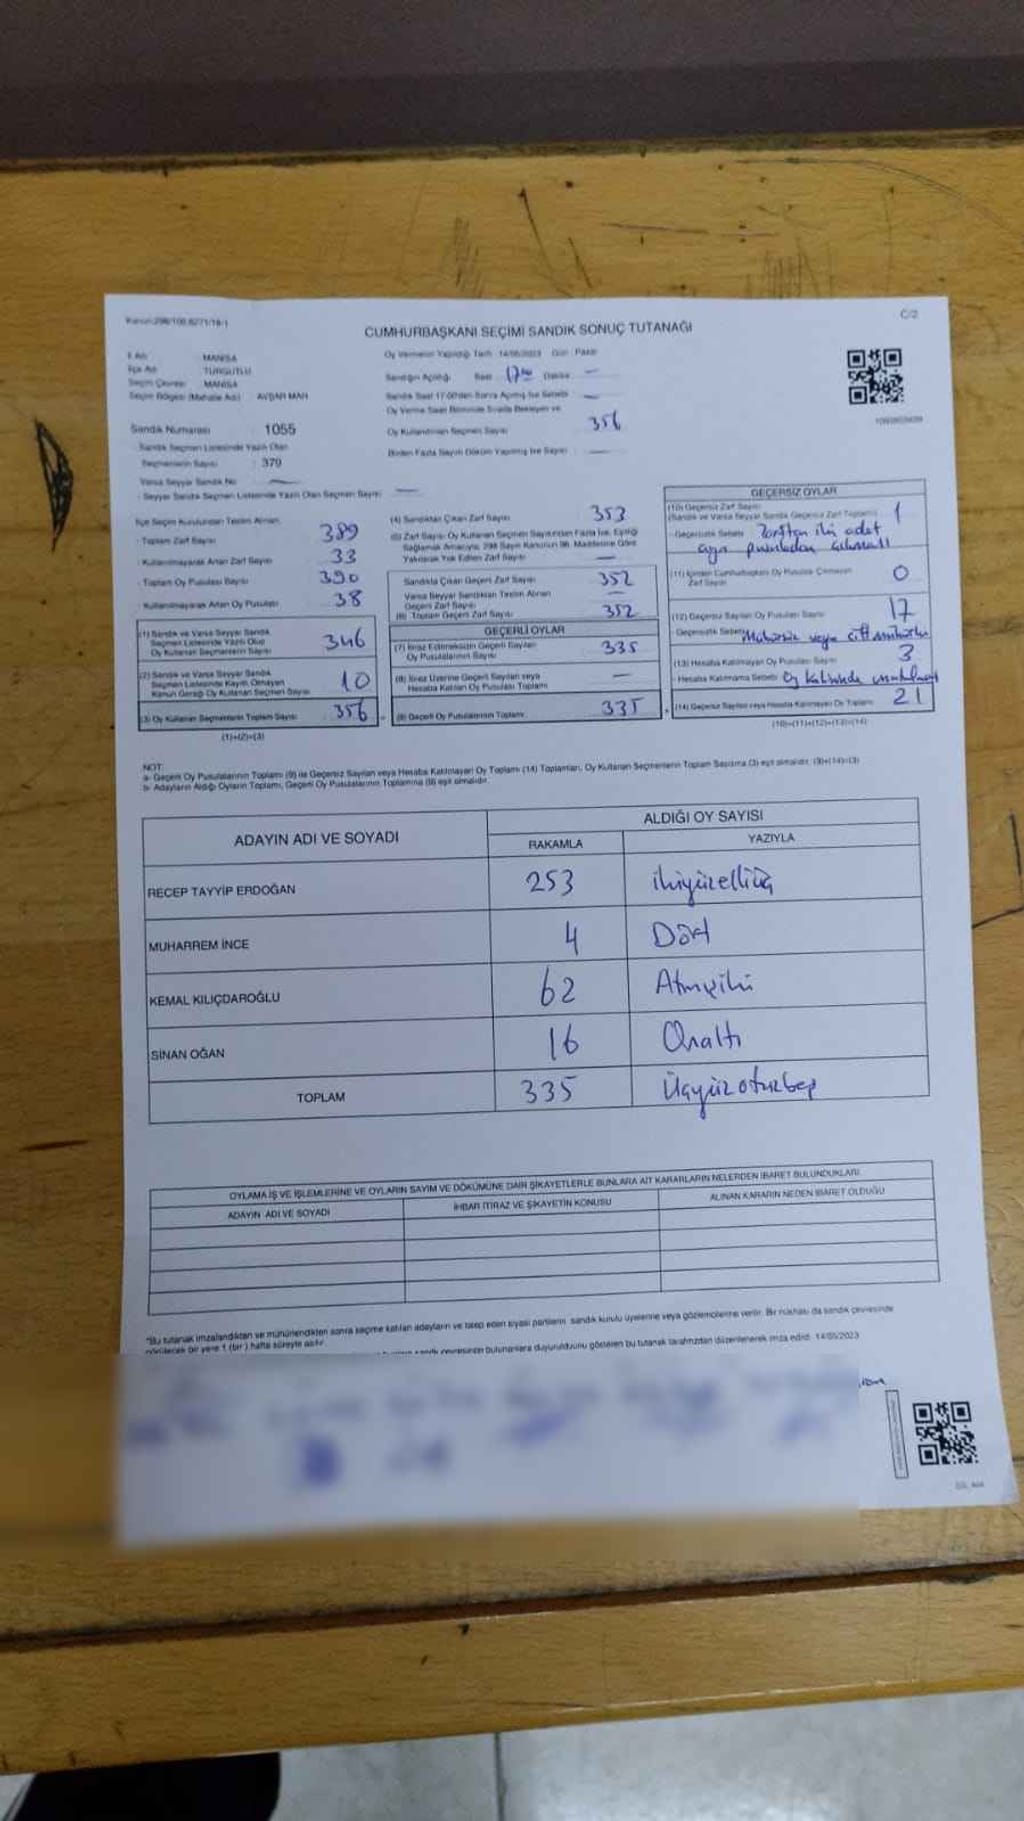 C/2
CUMHURBAŞKANI SEÇİMİ SANDIK SONUÇ TUTANAĞI
İl Adı MANİSA
İlçe Adı TURGUTLU
Seçim Çevresi MANİSA
Seçim Bölgesi (Mahalle Adı) AVŞAR MAH
Sandık Numarası 1055
Sandık Seçmen Listesinde Yazılı Olan
Seçmenlerin Sayısı : 379
Varsa Seyyar Sandık No —
Seyyar Sandık Seçmen Listesinde Yazılı Olan Seçmen Sayısı —
Oy Vermenin Yapıldığı Tarih 14/05/2023 Gün : Pazar
Sandığın Açılışı Saat 17.00 Dakika —
Sandık Saat 17:00'den Sonra Açılmış İse Sebebi —
Oy Verme Saati Bitiminde Sırada Bekleyen ve
Oy Kullandırılan Seçmen Sayısı 356
Birden Fazla Sayım Döküm Yapılmış İse Sayısı —
İlçe Seçim Kurulundan Teslim Alınan
- Toplam Zarf Sayısı 389
- Kullanılmayarak Artan Zarf Sayısı 33
- Toplam Oy Pusulası Sayısı 390
- Kullanılmayarak Artan Oy Pusulası 38
(1) Sandık ve Varsa Seyyar Sandık
Seçmen Listesinde Yazılı Olup
Oy Kullanan Seçmenlerin Sayısı 346
(2) Sandık ve Varsa Seyyar Sandık
Seçmen Listesinde Kayıtlı Olmayan
Kanun Gereği Oy Kullanan Seçmen Sayısı 10
(3) Oy Kullanan Seçmenlerin Toplam Sayısı 356
(1)+(2)=(3)
(4) Sandıktan Çıkan Zarf Sayısı 353
(5) Zarf Sayısı Oy Kullanan Seçmen Sayısından Fazla İse, Eşitliği
Sağlamak Amacıyla, 298 Sayılı Kanunun 98. Maddesine Göre
Yakılarak Yok Edilen Zarf Sayısı —
Sandıkta Çıkan Geçerli Zarf Sayısı 352
Varsa Seyyar Sandıktan Teslim Alınan
Geçerli Zarf Sayısı —
(6) Toplam Geçerli Zarf Sayısı 352
GEÇERLİ OYLAR
(7) İtiraz Edilmeksizin Geçerli Sayılan
Oy Pusulalarının Sayısı 335
(8) İtiraz Üzerine Geçerli Sayılan veya
Hesaba Katılan Oy Pusulası Toplamı —
(9) Geçerli Oy Pusulalarının Toplamı 335
GEÇERSİZ OYLAR
(10) Geçersiz Zarf Sayısı
(Sandık ve Varsa Seyyar Sandık Geçersiz Zarf Toplamı) 1
- Geçersizlik Sebebi Zarftan iki adet
ayrı pusuladan çıkması
(11) İçinden Cumhurbaşkanı Oy Pusulası Çıkmayan
Zarf Sayısı 0
(12) Geçersiz Sayılan Oy Pusulası Sayısı 17
- Geçersizlik Sebebi Mühürsüz veya çift mühürlü
(13) Hesaba Katılmayan Oy Pusulası Sayısı 3
- Hesaba Katılmama Sebebi Oy kabininde
(14) Geçersiz Sayılan veya Hesaba Katılmayan Oy Toplamı 21
(10)+(11)+(12)+(13)=(14)
NOT:
a- Geçerli Oy Pusulalarının Toplamı (9) ile Geçersiz Sayılan veya Hesaba Katılmayan Oy Toplamı (14) Toplamları, Oy Kullanan Seçmenlerin Toplam Sayısına (3) eşit olmalıdır. (9)+(14)=(3)
b- Adayların Aldığı Oyların Toplamı, Geçerli Oy Pusulalarının Toplamına (9) eşit olmalıdır.
ADAYIN ADI VE SOYADI
ALDIĞI OY SAYISI
RAKAMLA YAZIYLA
RECEP TAYYİP ERDOĞAN 253 ikiyüzelliüç
MUHARREM İNCE 4 Dört
KEMAL KILIÇDAROĞLU 62 Atmışiki
SİNAN OĞAN 16 Onaltı
TOPLAM 335 Üçyüzotuzbeş
OYLAMA İŞ VE İŞLEMLERİNE VE OYLARIN SAYIM VE DÖKÜMÜNE DAİR ŞİKAYETLERLE BUNLARA AİT KARARLARIN NELERDEN İBARET BULUNDUKLARI
ADAYIN ADI VE SOYADI İHBAR İTİRAZ VE ŞİKAYETİN KONUSU ALINAN KARARIN NEDEN İBARET OLDUĞU
*Bu tutanak imzalandıktan ve mühürlendikten sonra seçime katılan adayların ve talep eden siyasi partilerin sandık kurulu üyelerine veya gözlemcilerine verilir. Bir nüshası da sandık çevresinde
görülecek bir yere 1 (bir) hafta süreyle asılır.
sandık çevresinde bulunanlara duyurulduğunu gösteren bu tutanak tarafımızdan düzenlenerek imza edildi. 14/05/2023